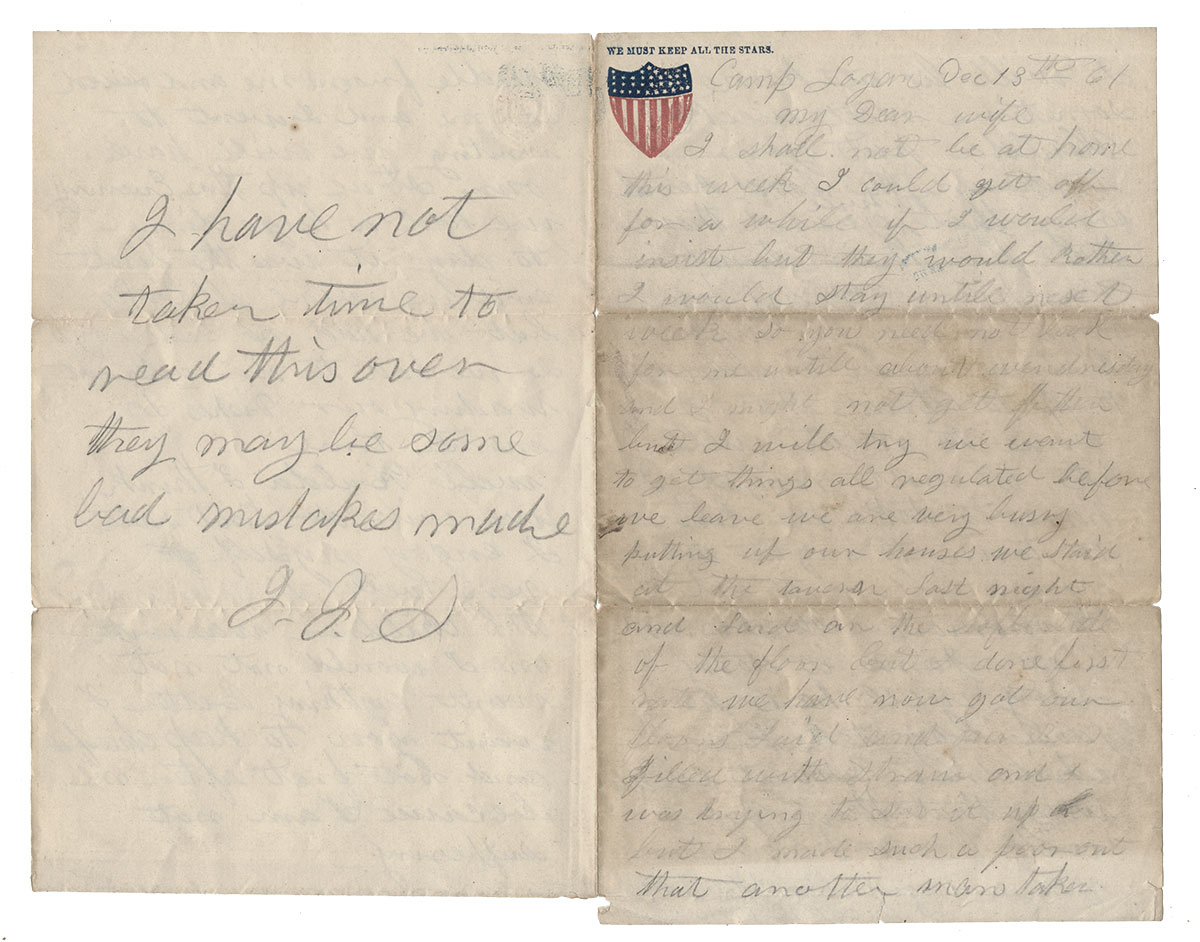 I have not
taken time to
read this over
they may be some
bad mistakes made
J. J. S
WE MUST KEEP ALL THE STARS.
Camp Logan Dec 13th
My Dear wife
I shall not be at home
this week I could get off
for a while if I would
insist but they would Rather
I would stay untile next
week So you need not look
for me untile about wendnesday
and I might not get off then
but I will try we want
to get things all regulated before
we leave we are very busy
putting up our houses we staid
at the tavern Last night
and Laid on the
of the floor but I done first
rate we have now got our
floors Laid and our
filled with straw and I
was trying to sew it up
but I made such a poor out
that another man taken